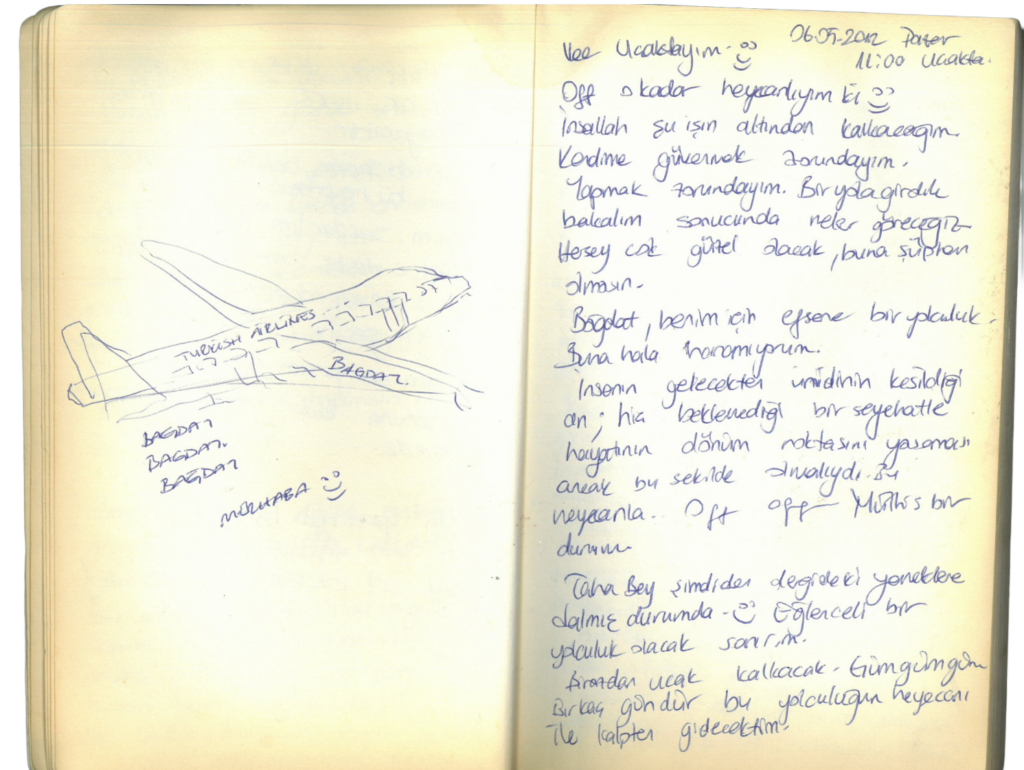 TURKISH AIRLINES
BAGDAT.
BAGDAT
BAGDAT.
BAGDAT
MERHABA
06.05.2012 Pazar
11:00 Uçakta.
Vee Uçaktayım.
Off o kadar heyecanlıyım ki
İnşallah şu işin altından kalkacağım
Kendime güvenmek zorundayım.
Yapmak zorundayım. Bir yola girdik
bakalım sonucunda neler göreceğiz
Herşey çok güzel olacak, buna şüphen
olmasın.
Bağdat, benim için efsane bir yolculuk.
Buna hala inanamıyorum.
İnsanın gelecekten ümidinin kesildiği
an; hiç beklenediği bir seyehatle
hayatının dönüm noktasını yaşaması
ancak bu şekilde olmalıydı. Bu
heyecanla. Off off Müthiş bir
durum.
Taha Bey şimdiden dergideki yemeklere
dalmış durumda. Eğlenceli bir
yolculuk olacak sanırım.
Birazdan uçak kalkacak. Güm güm güm
Birkaç gündür bu yolculuğun heyecanı
ile kalpten gidecektim.